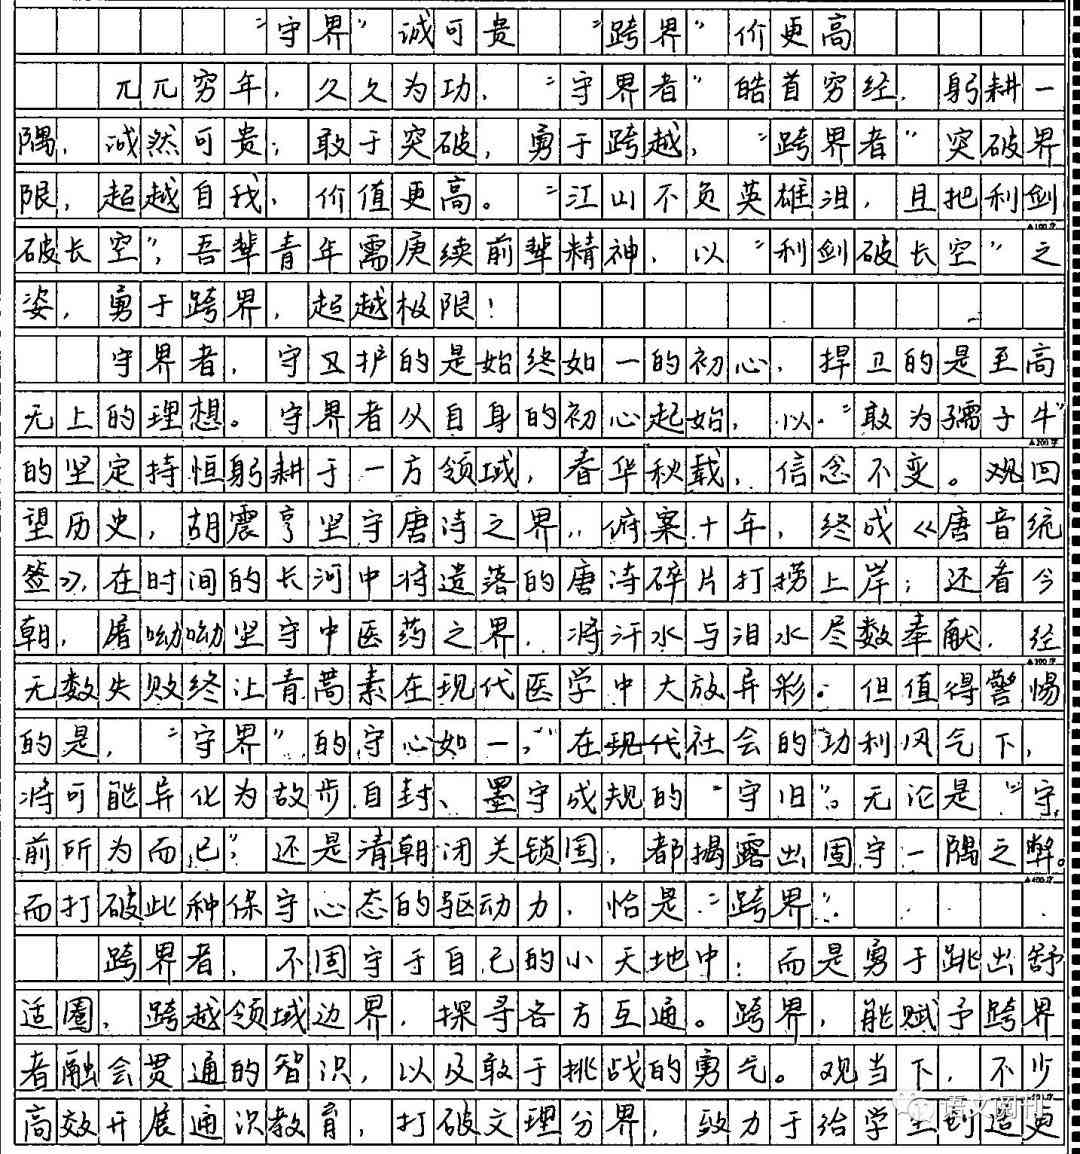 “守界”诚可贵 “跨界”价更高
兀兀穷年，久久为功，“守界者”皓首穷经，躬耕一
隅，诚然可贵；敢于突破，勇于跨越，“跨界者”突破界
限，超越自我，价值更高。“江山不负英雄泪，且把利剑
破长空”，吾辈青年需赓续前辈精神，以“利剑破长空”之
姿，勇于跨界，超越极限！
守界者，守护的是始终如一的初心，捍卫的是至高
无上的理想。守界者从自身的初心起始，以“敢为孺子牛”
的坚定持恒躬耕于一方领域，春华秋载，信念不变。观回
望历史，胡震亨坚守唐诗之界，俯案十年，终成《唐音统
签》，在时间的长河中将遗落的唐诗碎片打捞上岸；还看今
朝，屠呦呦坚守中医药之界，将汗水与泪水尽数奉献，经
无数失败终让青蒿素在现代医学中大放异彩。但值得警惕
的是，“守界”的守心如一，在现代社会的功利风气下，
将可能异化为故步自封、墨守成规的“守旧”。无论是“守
前所为而已”，还是清朝闭关锁国，都揭露出固守一隅之弊。
而打破此种保守心态的驱动力，恰是“跨界”。
跨界者，不固守于自己的小天地中；而是勇于跳出舒
适圈，跨越领域边界，探寻各方互通。跨界，能赋予跨界
者融会贯通的智识，以及敢于挑战的勇气。观当下，不少
高效开展通识教育，打破文理分界，致力于给学生创造更
语文阅刊